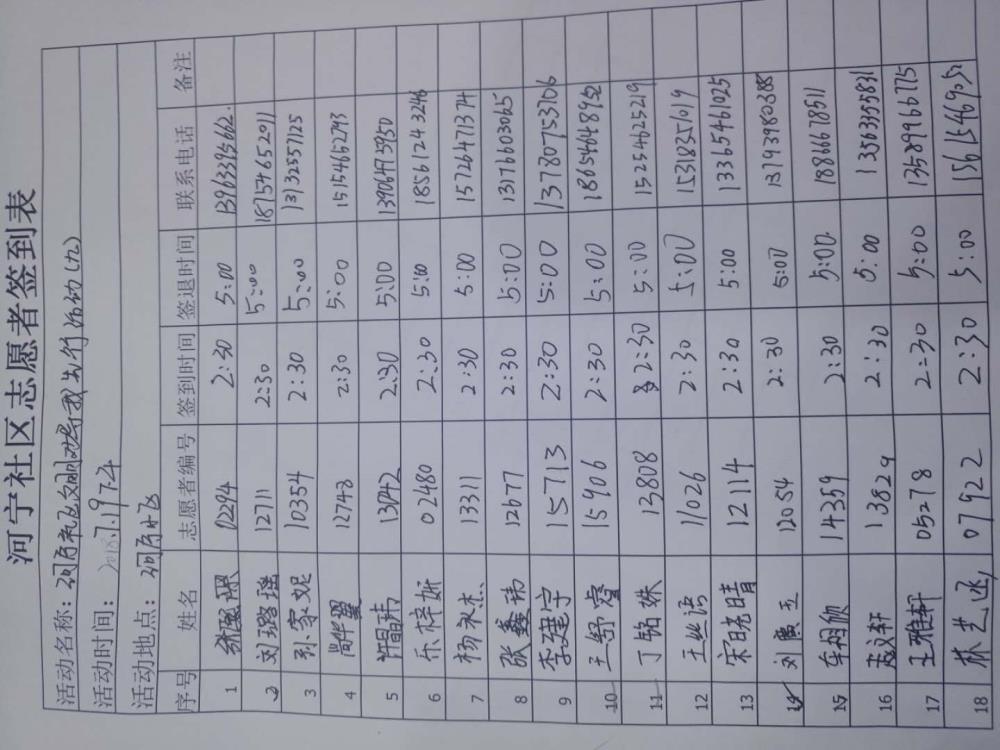 河宁社区志愿者签到表
活动名称：河宁社区文明劝导我先行活动（九）
活动时间：2018.7.19下午
活动地点：河宁社区
序号 姓名 志愿者编号 签到时间 签退时间 联系电话 备注
1 10294 2:30 5:00 13963395662
2 刘璐瑶 12711 2:30 5:00 18754652011
3 孙家妮 10354 2:30 5:00 13132557125
4 12748 2:30 5:00 15154662793
5 许晶韩 13042 2:30 5:00 13906473950
6 乐梓妍 02480 2:30 5:00 18561243246
7 杨永杰 13311 2:30 5:00 15726471374
8 张鑫 12677 2:30 5:00 13176603065
9 李建宇 15713 2:30 5:00 13780753706
10 王舒睿 15906 2:30 5:00 18654648952
11 丁铭姝 13808 2:30 5:00 15254625219
12 王丝语 11026 2:30 5:00 15318351019
13 宋晓晴 12114 2:30 5:00 13365461025
14 刘广玉 12054 2:30 5:00
15 14359 2:30 5:00 18866678511
16 13829 2:30 5:00 13563355831
17 王雅轩 05278 2:30 5:00 13589966775
18 林艺涵 07922 2:30 5:00